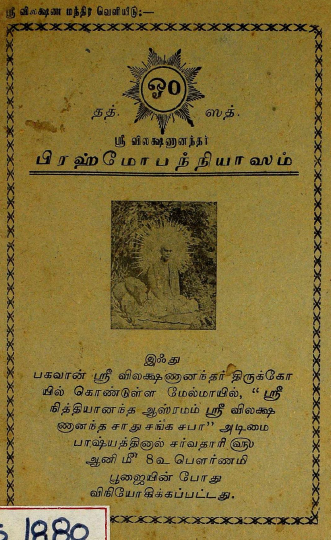 ஸ்ரீ விலக்ஷண மந்திர வெளியீடு:—
ஓ௦
தத். ஸத்.
ஸ்ரீ விலக்ஷணானந்தர்
பிரஹ்மோபந்நியாஸம்
இஃது
பகவான் ஸ்ரீ விலக்ஷணானந்தர் திருக்கோ
யில் கொண்டுள்ள மேல்மாயில், “ ஸ்ரீ
நித்தியானந்த ஆஸ்ரமம் ஸ்ரீ விலக்ஷ
ணானந்த சாது சங்க சபா” அடிமை
பாஷ்யத்தினால் சர்வதாரி ௵
ஆனி ௴ 8௳ பௌர்ணமி
பூஜையின் போது
விநியோகிக்கப்பட்டது.
1880